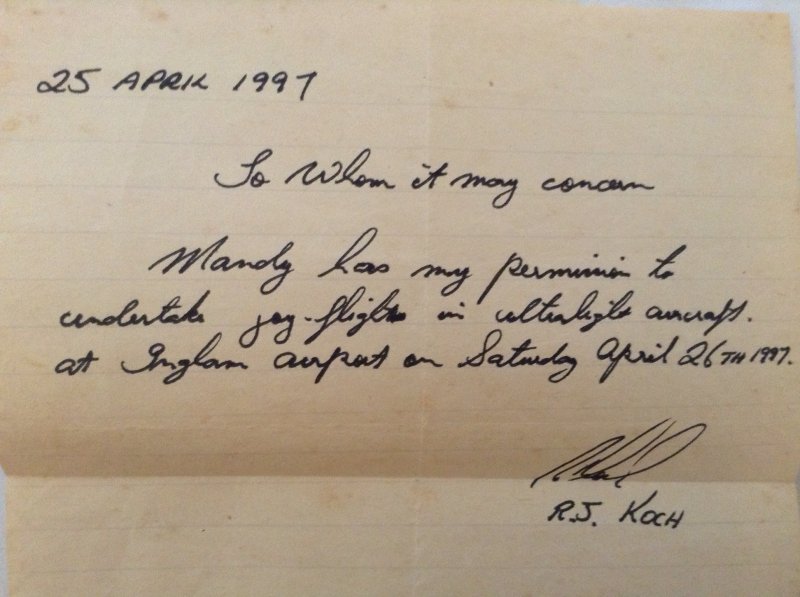 25 APRIL 1997
To Whom it may concern
Mandy has my permission to
undertake joy-flights in ultralight aircraft.
at Ingham airport on Saturday April 26TH 1997.
R.J. KOCH